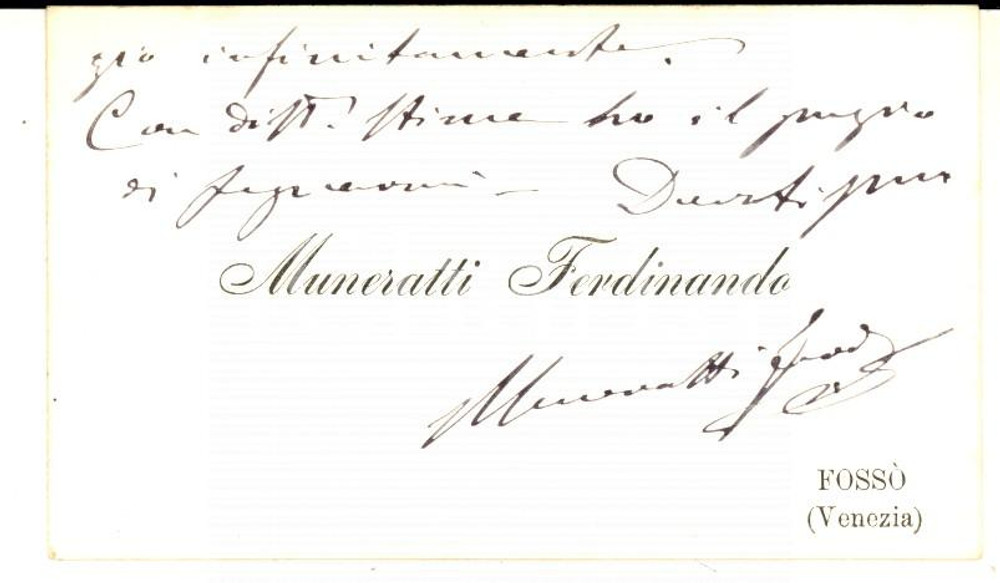 gio infinitamente.
Con dist.ª stima ho il pregio
di segnarmi – Devotissimo
Muneratti Ferdinando
Muneratti Ferd
FOSSÒ
(Venezia)